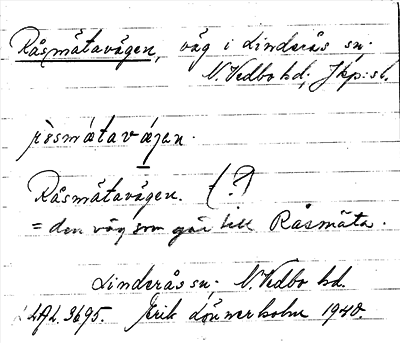 Råsmätavägen, väg i Linderås sn.
N. Vedbo hd; Jkp:s l.
Råsmätavägen. (?)
= den väg som går till Råsmäta.
Linderås sn; N. Vedbo hd.
LAL. 3695. Erik Lönnerholm 1940.